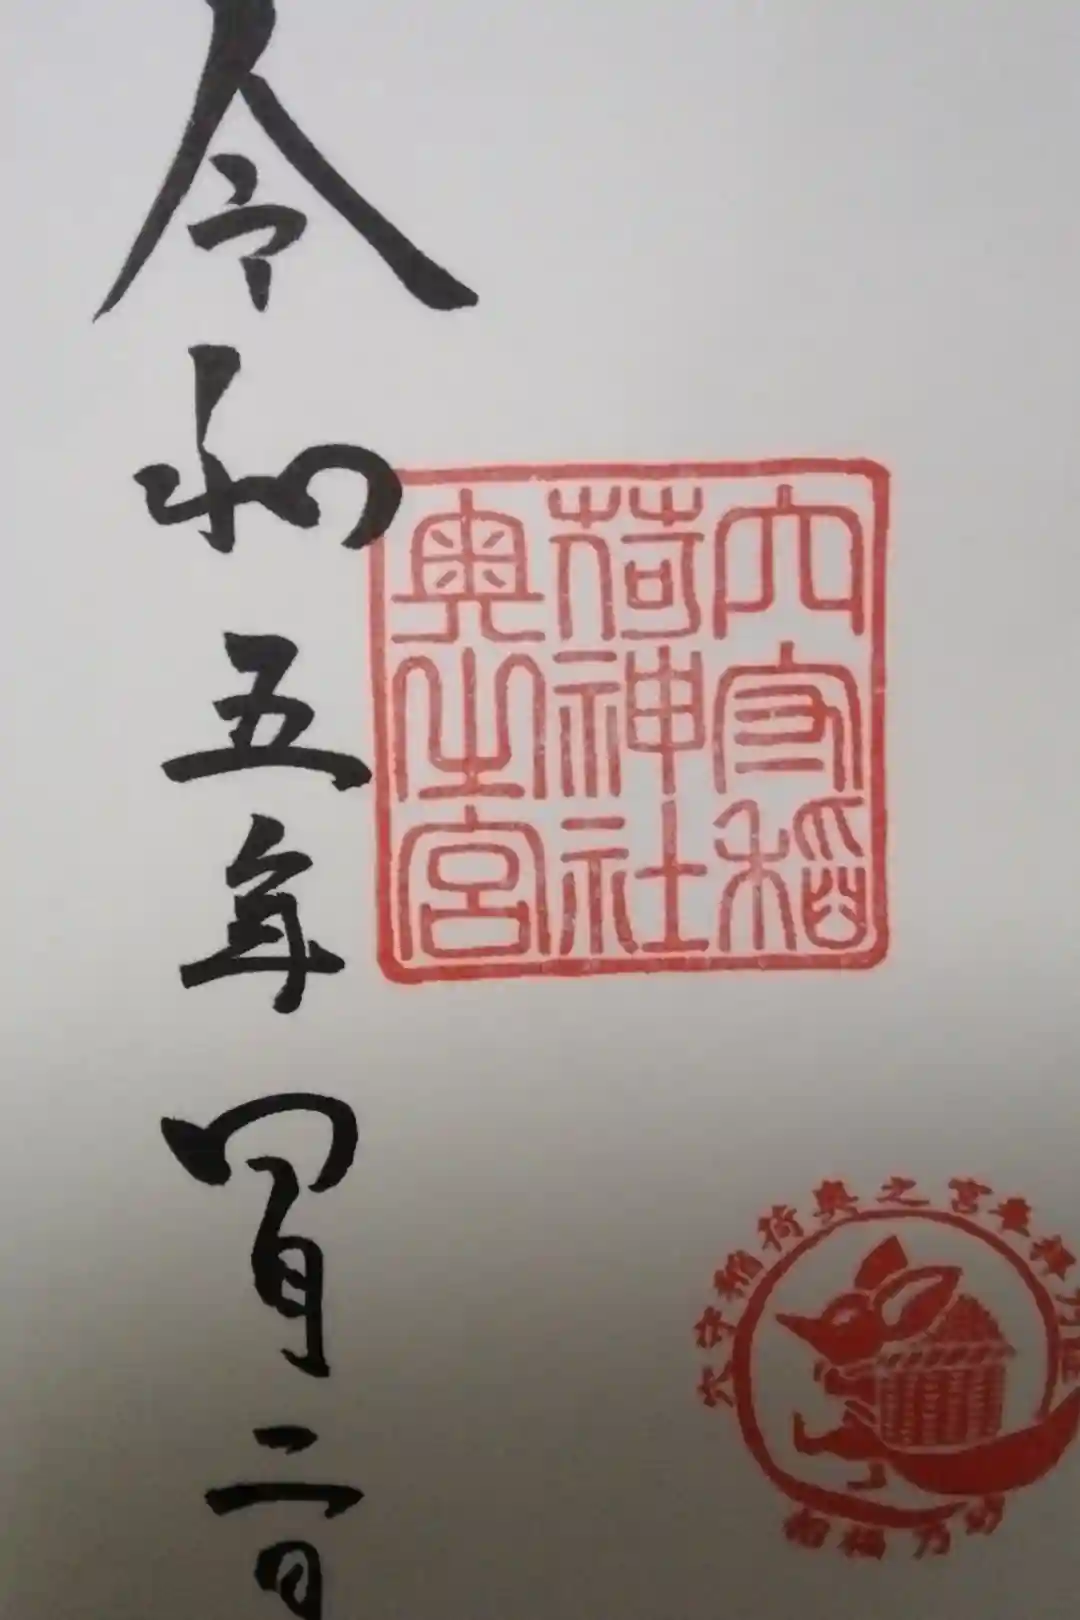 穴守稲
荷神社
奥之宮
令和五年四月二日
穴守稲荷奥之宮
招福乃砂